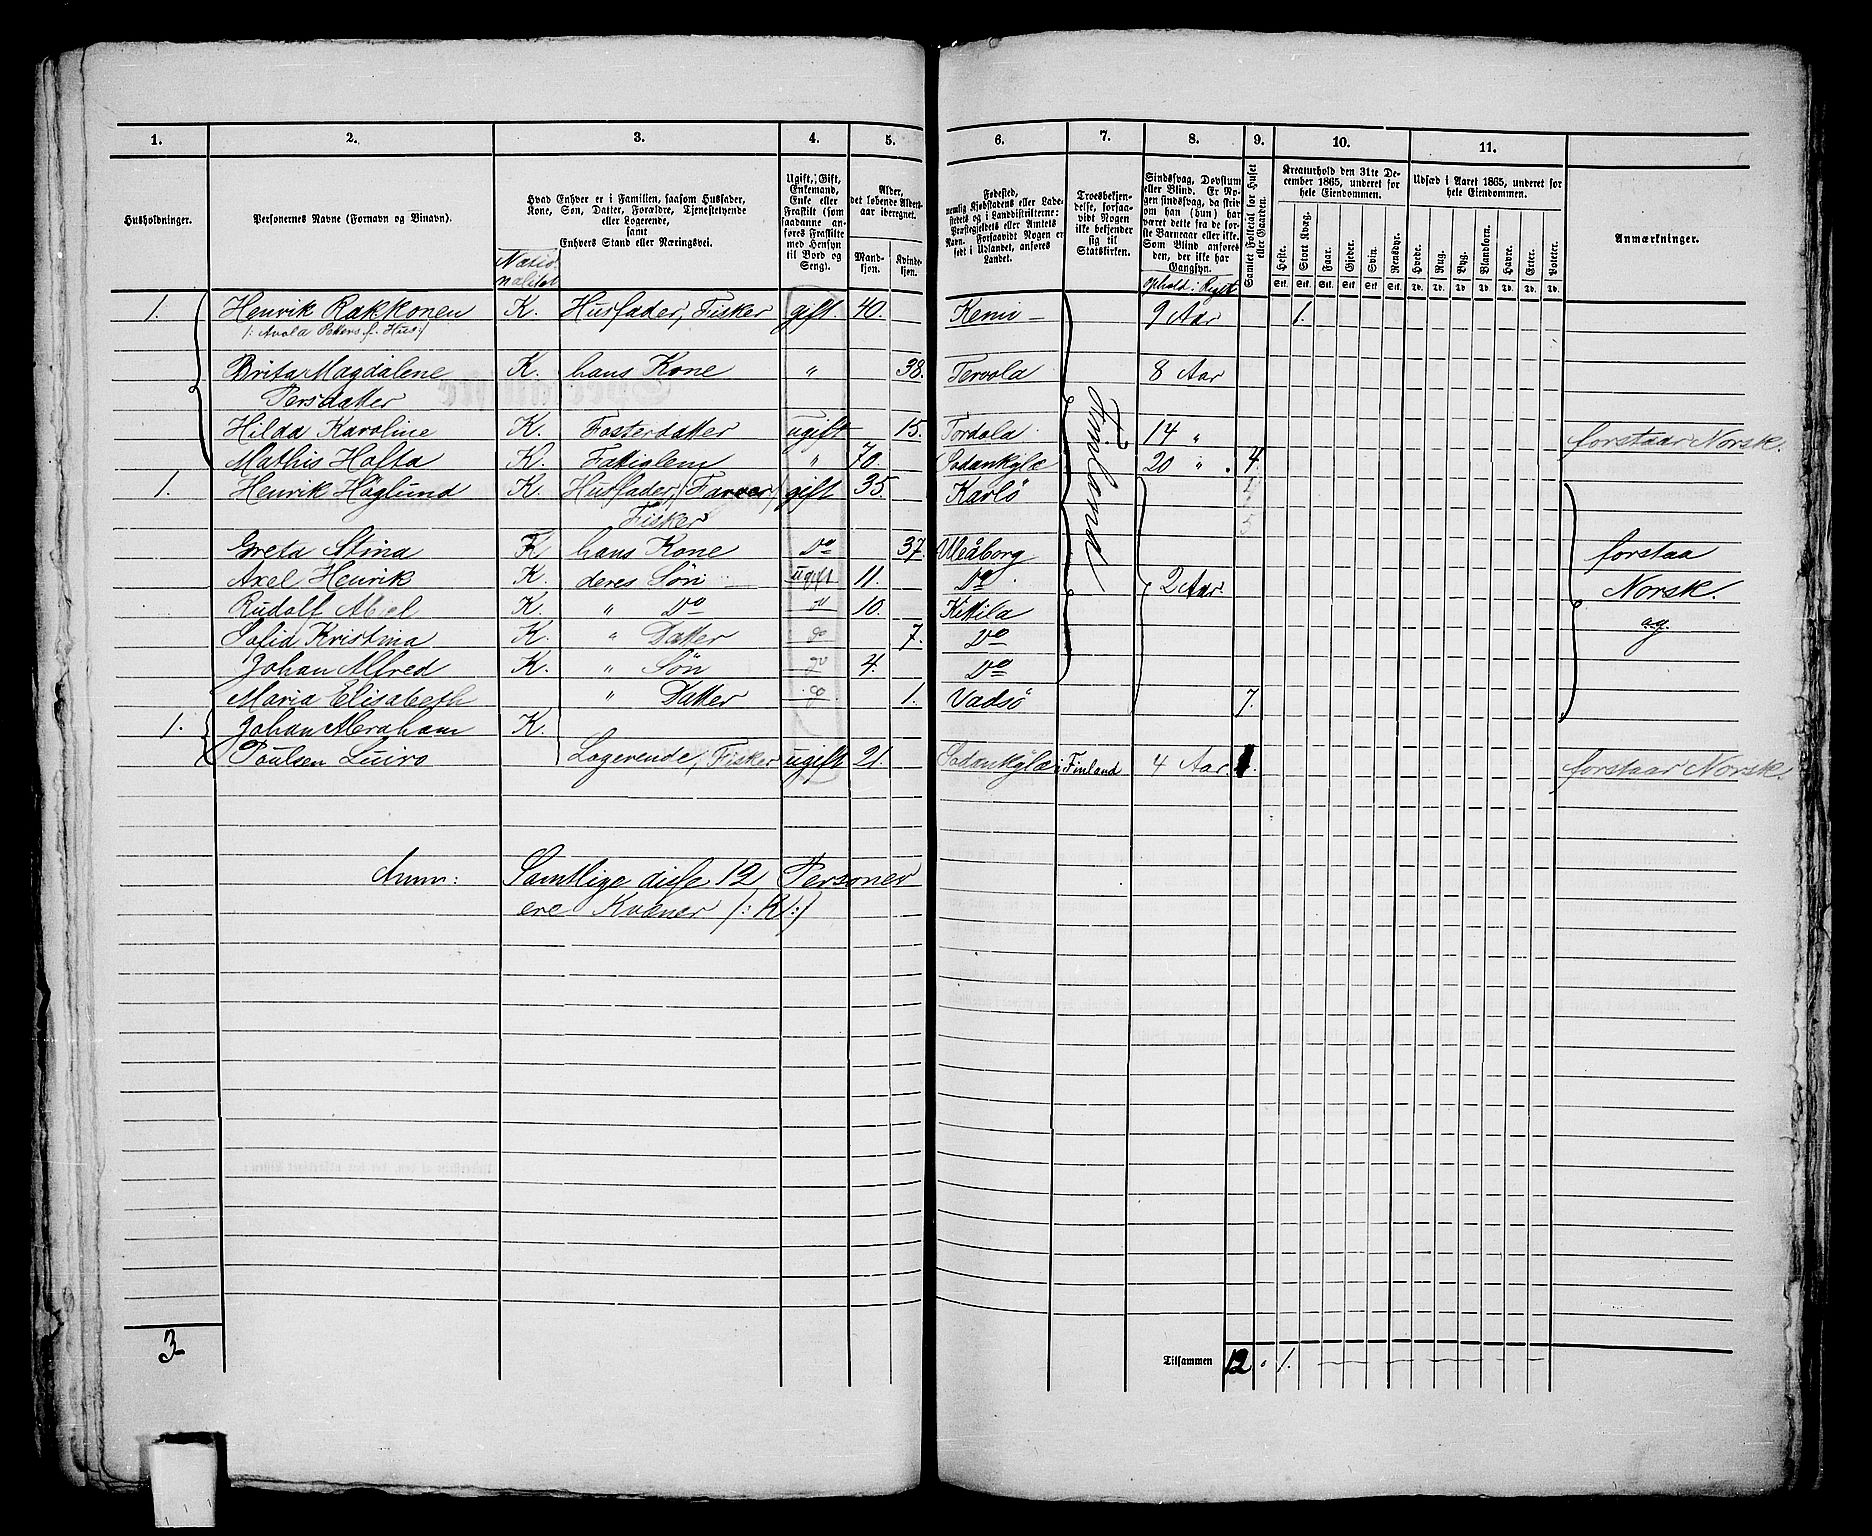 1. 2. 3. 4. 5. 6. 7. 8. 9. 10. 11.
Husholdninger.
Personernes Navne (Fornavn og Binavn).
Hvad Enhver er i Familien, saasom Husfader,
Kone, Søn, Datter, Forældre, Tjenestetyende
eller Logerende,
samt
Enhvers Stand eller Næringsvei.
Natio-
nalitet
Ugift, Gift,
Enkemand,
Enke eller
Fraskilt (som
saadanne an-
føres Fraskilte
med Hensyn
til Bord og
Seng).
Alder,
det løbende Alders-
aar iberegnet.
Mand-
kjøn.
Kvinde-
kjøn.
Fødested,
nemlig Kjøbstadens eller Lade-
stedets og i Landdistrikterne:
Præstegjeldets eller Amtets
Navn. Forsaavidt Nogen er
født i Udlandet, anføres
Landet.
Troesbekjen-
delse, forsaa-
vidt Nogen
ikke bekjender
sig til
Statskirken.
Sindssvag, Døvstum
eller Blind. Er No-
gen sindssvag, da skriv
om han (hun) har
været dette fra de før-
ste Barneaar eller ikke.
Som Blind anføres
den, der ikke har
Gangsyn.
Ophold i Riget
Samlet Folketal for Huset
eller Gaarden.
Kreaturhold den 31te De-
cember 1865, underet for
hele Eiendommen.
Heste. Stort Kvæg. Faar. Gjeder. Svin. Rensdyr.
Stk. Stk. Stk. Stk. Stk. Stk.
Udsæd i Aaret 1865, underet for
hele Eiendommen.
Hvede. Rug. Byg. Blandkorn. Havre. Erter. Poteter.
Td. Td. Td. Td. Td. Td. Td.
Anmærkninger.
1. Henrik Rakkonen K. Husfader, Fisker gift 40. Kemi – 9 Aar 1.
/: Avola Petters f. Hus :/
Brita Magdalene K. hans Kone " 38. Tervola 8 Aar
Persdatter
Hilda Karoline K. Fosterdatter ugift 15. Tordola 14 " forstaar Norsk.
Mathis Hofta K. Fattiglem " 70. Sodankylæ 20 " . 4.
Finland
1. Henrik Häglund K. Husfader, / Farver / gift 35. Karlö
Fisker
Greta Stina K hans Kone Do 37. Uleåborg forstaa
Axel Henrik K. deres Søn ugift 11. Do 2 Aar. Norsk.
Rudolf Abel K. " Do do 10. Kittila og
Sofia Kristina K. " Datter do 7. Do
Johan Alfred K. " Søn do 4. Do
Maria Elisabeth " Datter do 1. Vadsö 7.
1. Johan Abraham K.
Poulsen Luiro Logerende, Fisker ugift 21. Sodankylæ i Finland 4 Aar. 1. forstaar Norsk.
Anm: Samtlige disse 12 Personer
ere Kvæner /: K :/
3
Tilsammen 12 " 1.